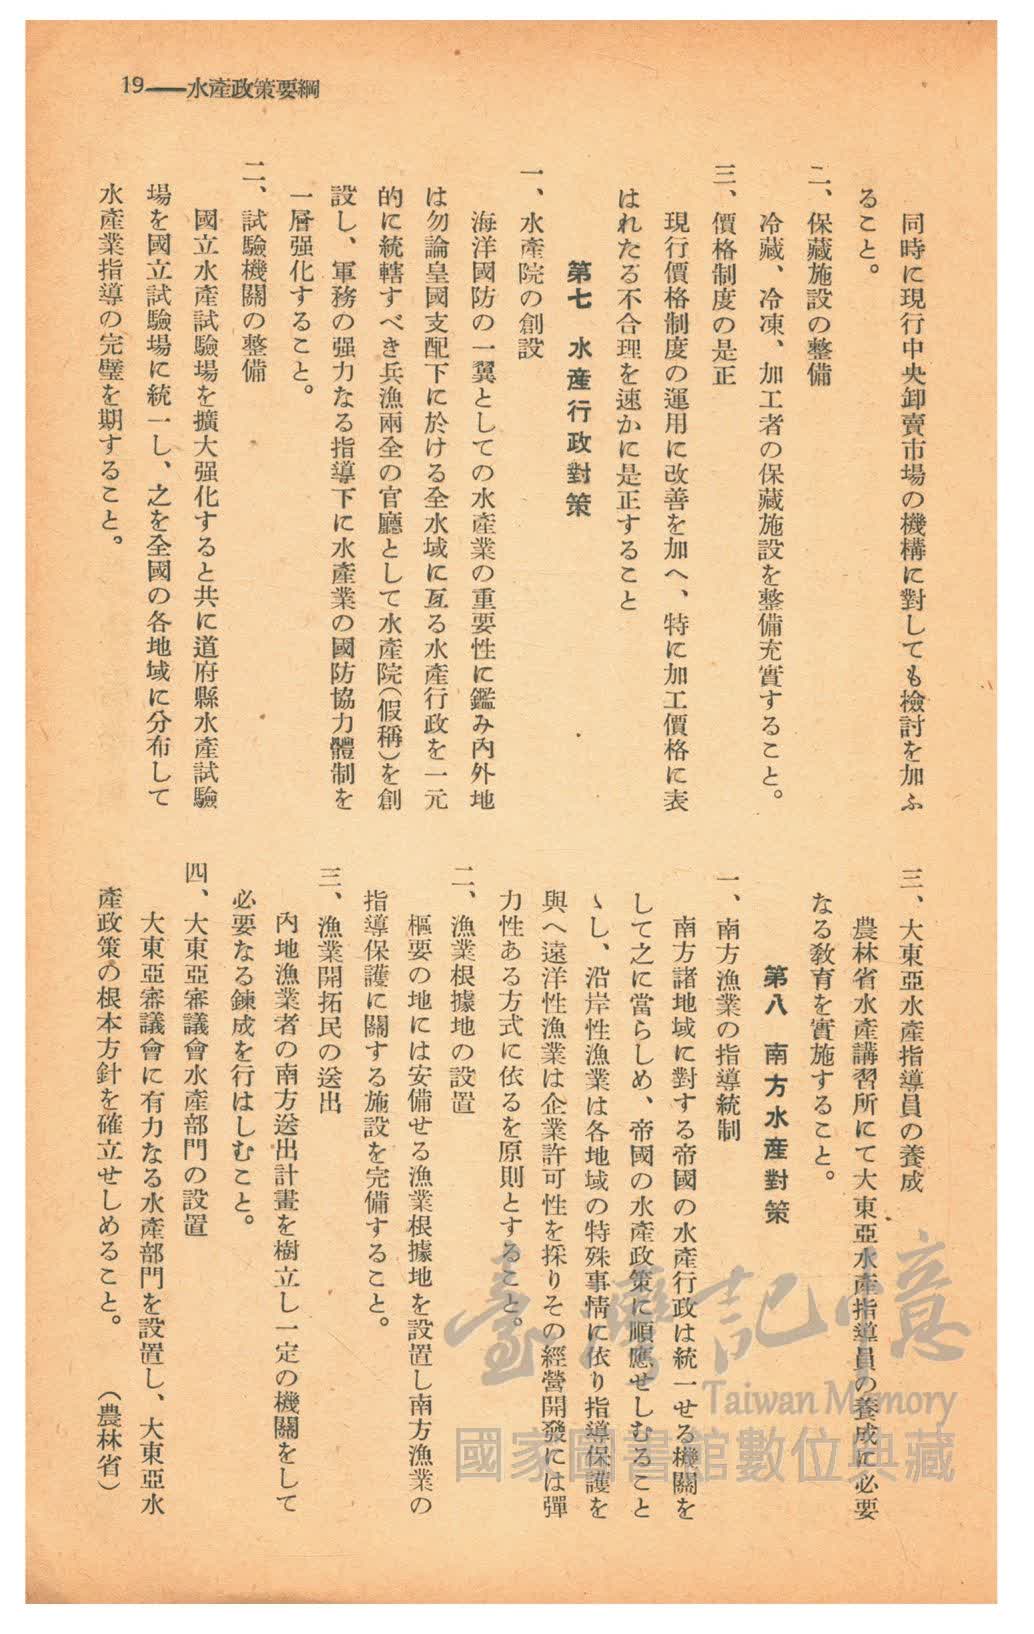 19——水產政策要綱
同時に現行中央卸賣市場の機構に對しても檢討を加ふ
ること。
二、保藏施設の整備
冷藏、冷凍、加工者の保藏施設を整備充實すること。
三、價格制度の是正
現行價格制度の運用に改善を加へ、特に加工價格に表
はれたる不合理を速かに是正すること
第七 水產行政對策
一、水產院の創設
海洋國防の一翼としての水產業の重要性に鑑み內外地
は勿論皇國支配下に於ける全水域に亙る水產行政を一元
的に統轄すべき兵漁兩全の官廳として水產院(假稱)を創
設し、軍務の强力なる指導下に水產業の國防協力體制を
一層强化すること。
二、試驗機關の整備
國立水產試驗場を擴大强化すると共に道府縣水產試驗
場を國立試驗場に統一し、之を全國の各地域に分布して
水產業指導の完璧を期すること。
三、大東亞水產指導員の養成
農林省水產講習所にて大東亞水產指導員の養成に必要
なる敎育を實施すること。
第八 南方水產對策
一、南方漁業の指導統制
南方諸地域に對する帝國の水產行政は統一せる機關を
して之に當らしめ、帝國の水產政策に順應せしむること
ゝし、沿岸性漁業は各地域の特殊事情に依り指導保護を
與へ遠洋性漁業は企業許可性を採りその經營開發には彈
力性ある方式に依るを原則とすること。
二、漁業根據地の設置
樞要の地には安備せる漁業根據地を設置し南方漁業の
指導保護に關する施設を完備すること。
三、漁業開拓民の送出
內地漁業者の南方送出計畫を樹立し一定の機關をして
必要なる鍊成を行はしむこと。
四、大東亞審議會水產部門の設置
大東亞審議會に有力なる水產部門を設置し、大東亞水
產政策の根本方針を確立せしめること。 (農林省)
臺灣記憶
Taiwan Memory
國家圖書館數位典藏